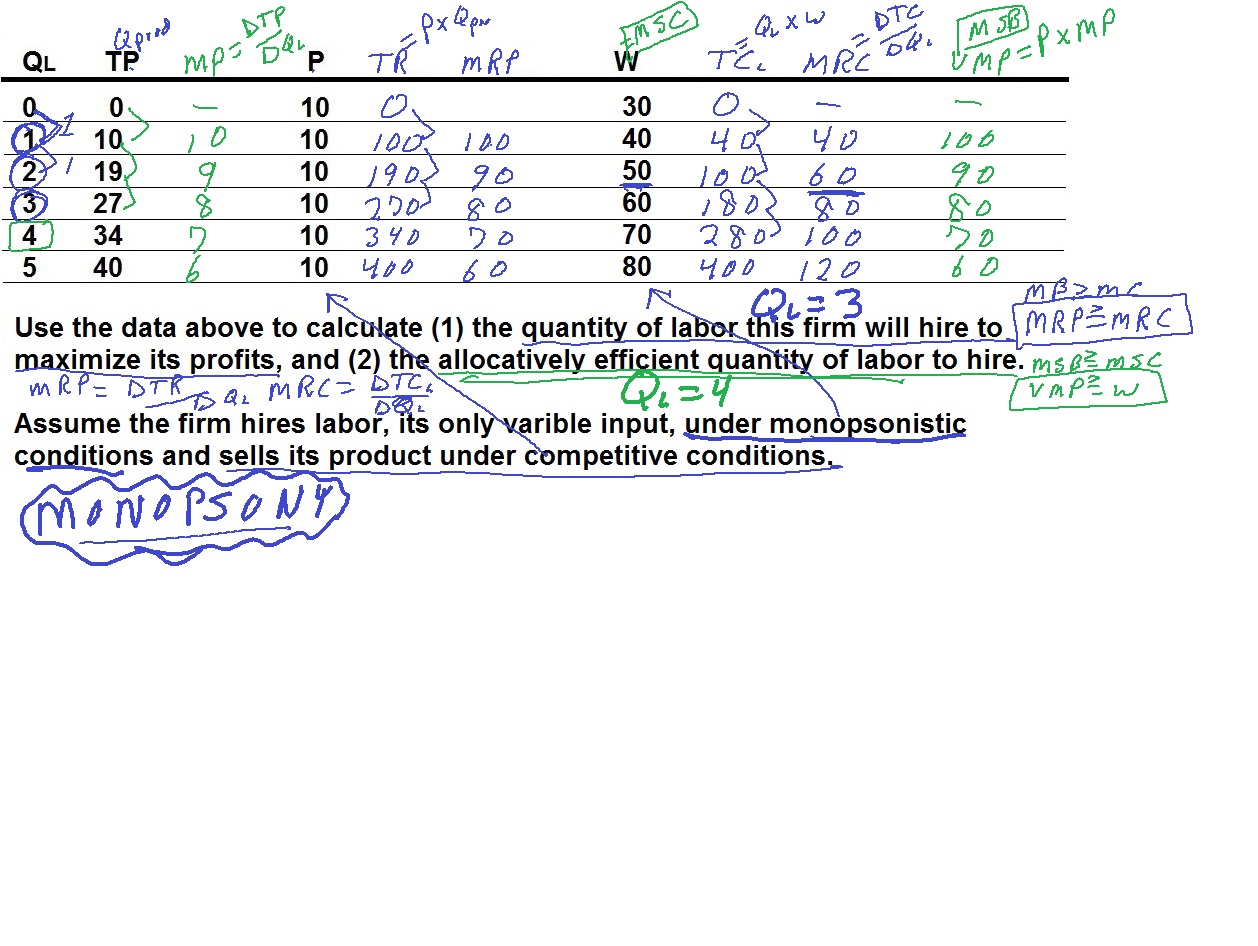 Qprod MP= DTP/DQL =PxQpr =MSC =QLxW =DTC/DQL MSB
QL TP MP P TR MRP W TCL MRC VMP=PxMP
0 0 — 10 0 30 0 — —
1 10 10 10 100 100 40 40 40 100
2 19 9 10 190 90 50 100 60 90
3 27 8 10 270 80 60 180 80 80
4 34 7 10 340 70 70 280 100 70
5 40 6 10 400 60 80 400 120 60
QL=3 MB≥MC
Use the data above to calculate (1) the quantity of labor this firm will hire to MRP≥MRC
maximize its profits, and (2) the allocatively efficient quantity of labor to hire. MSB≥MSC
MRP= DTR/DQL MRC= DTCL/DQL QL=4 VMP≥W
Assume the firm hires labor, its only varible input, under monopsonistic
conditions and sells its product under competitive conditions.
MONOPSONY